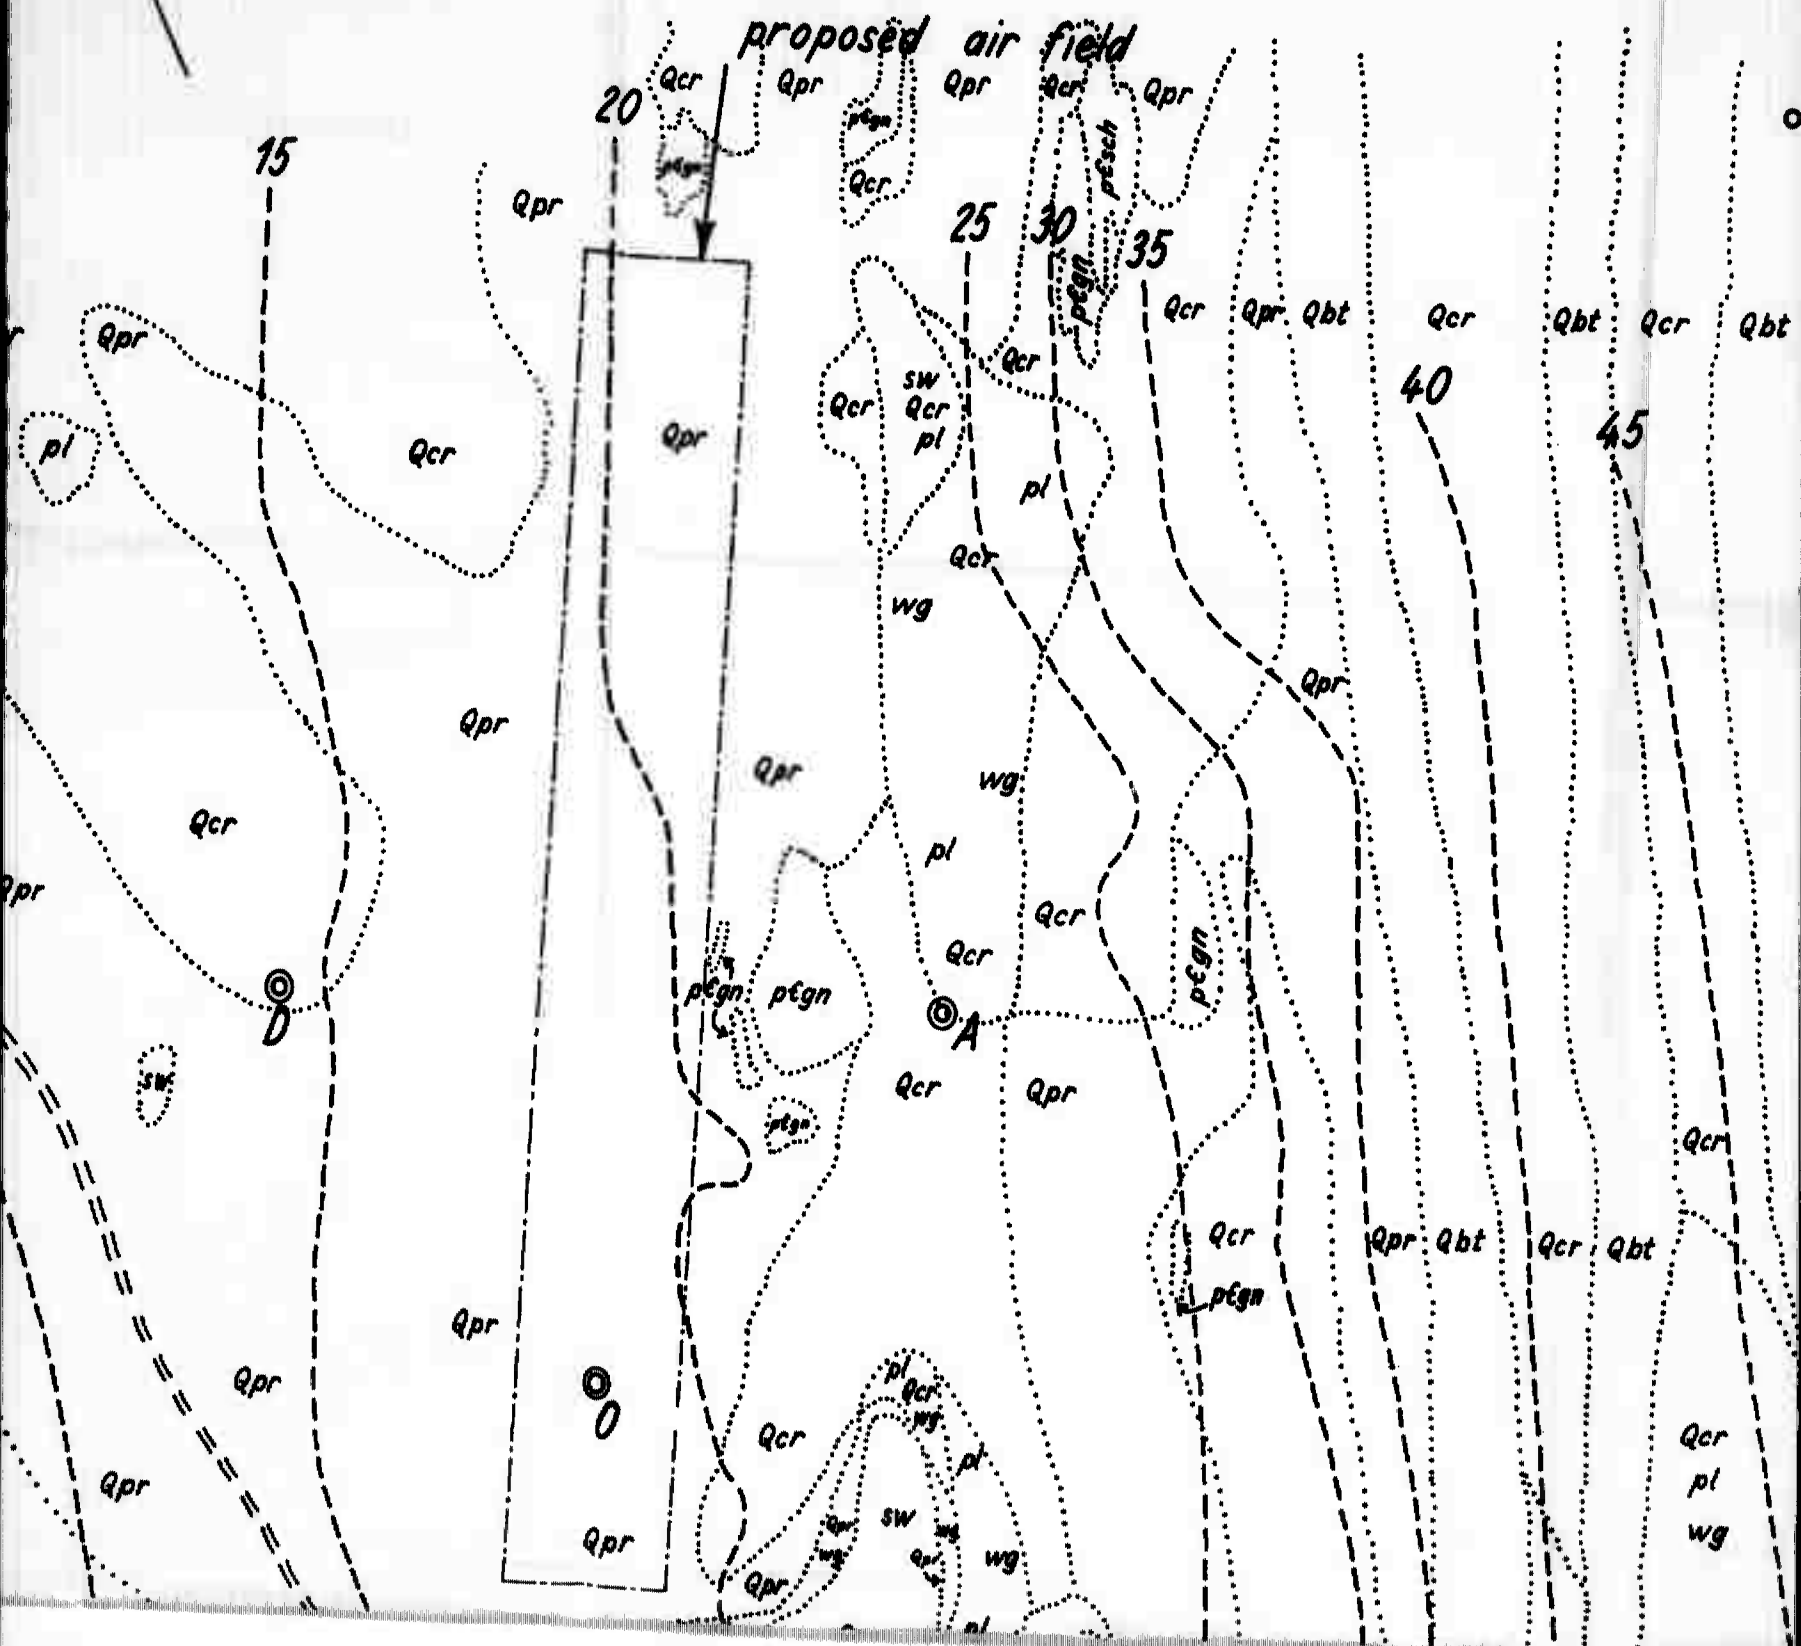 proposed air field
Qcr Qpr Qpr Qcr Qpr
20
p€gn
15
p€gn
p€sch
Qcr
Qpr
25 30 35
p€gn
Qcr Qpr Qbt Qcr Qbt Qcr Qbt
Qpr
Qcr
sw
Qcr
Qcr
pl
40
45
Qpr
pl
Qcr
pl
Qcr
wg
Qpr
Qpr
Qpr
wg
Qcr
pl
Qpr
Qcr
Qcr
p€gn
p€gn
p€gn
D
A
sw
Qcr
Qpr
p€gn
Qcr
Qcr
Qpr
Qbt
Qcr
Qbt
p€gn
Qpr
pl
Qcr
wg
Qpr
O
Qcr
pl
Qcr
pl
wg
Qpr
Qpr
sw
wg
Qpr
wg
Qpr
wg
Qpr
pl